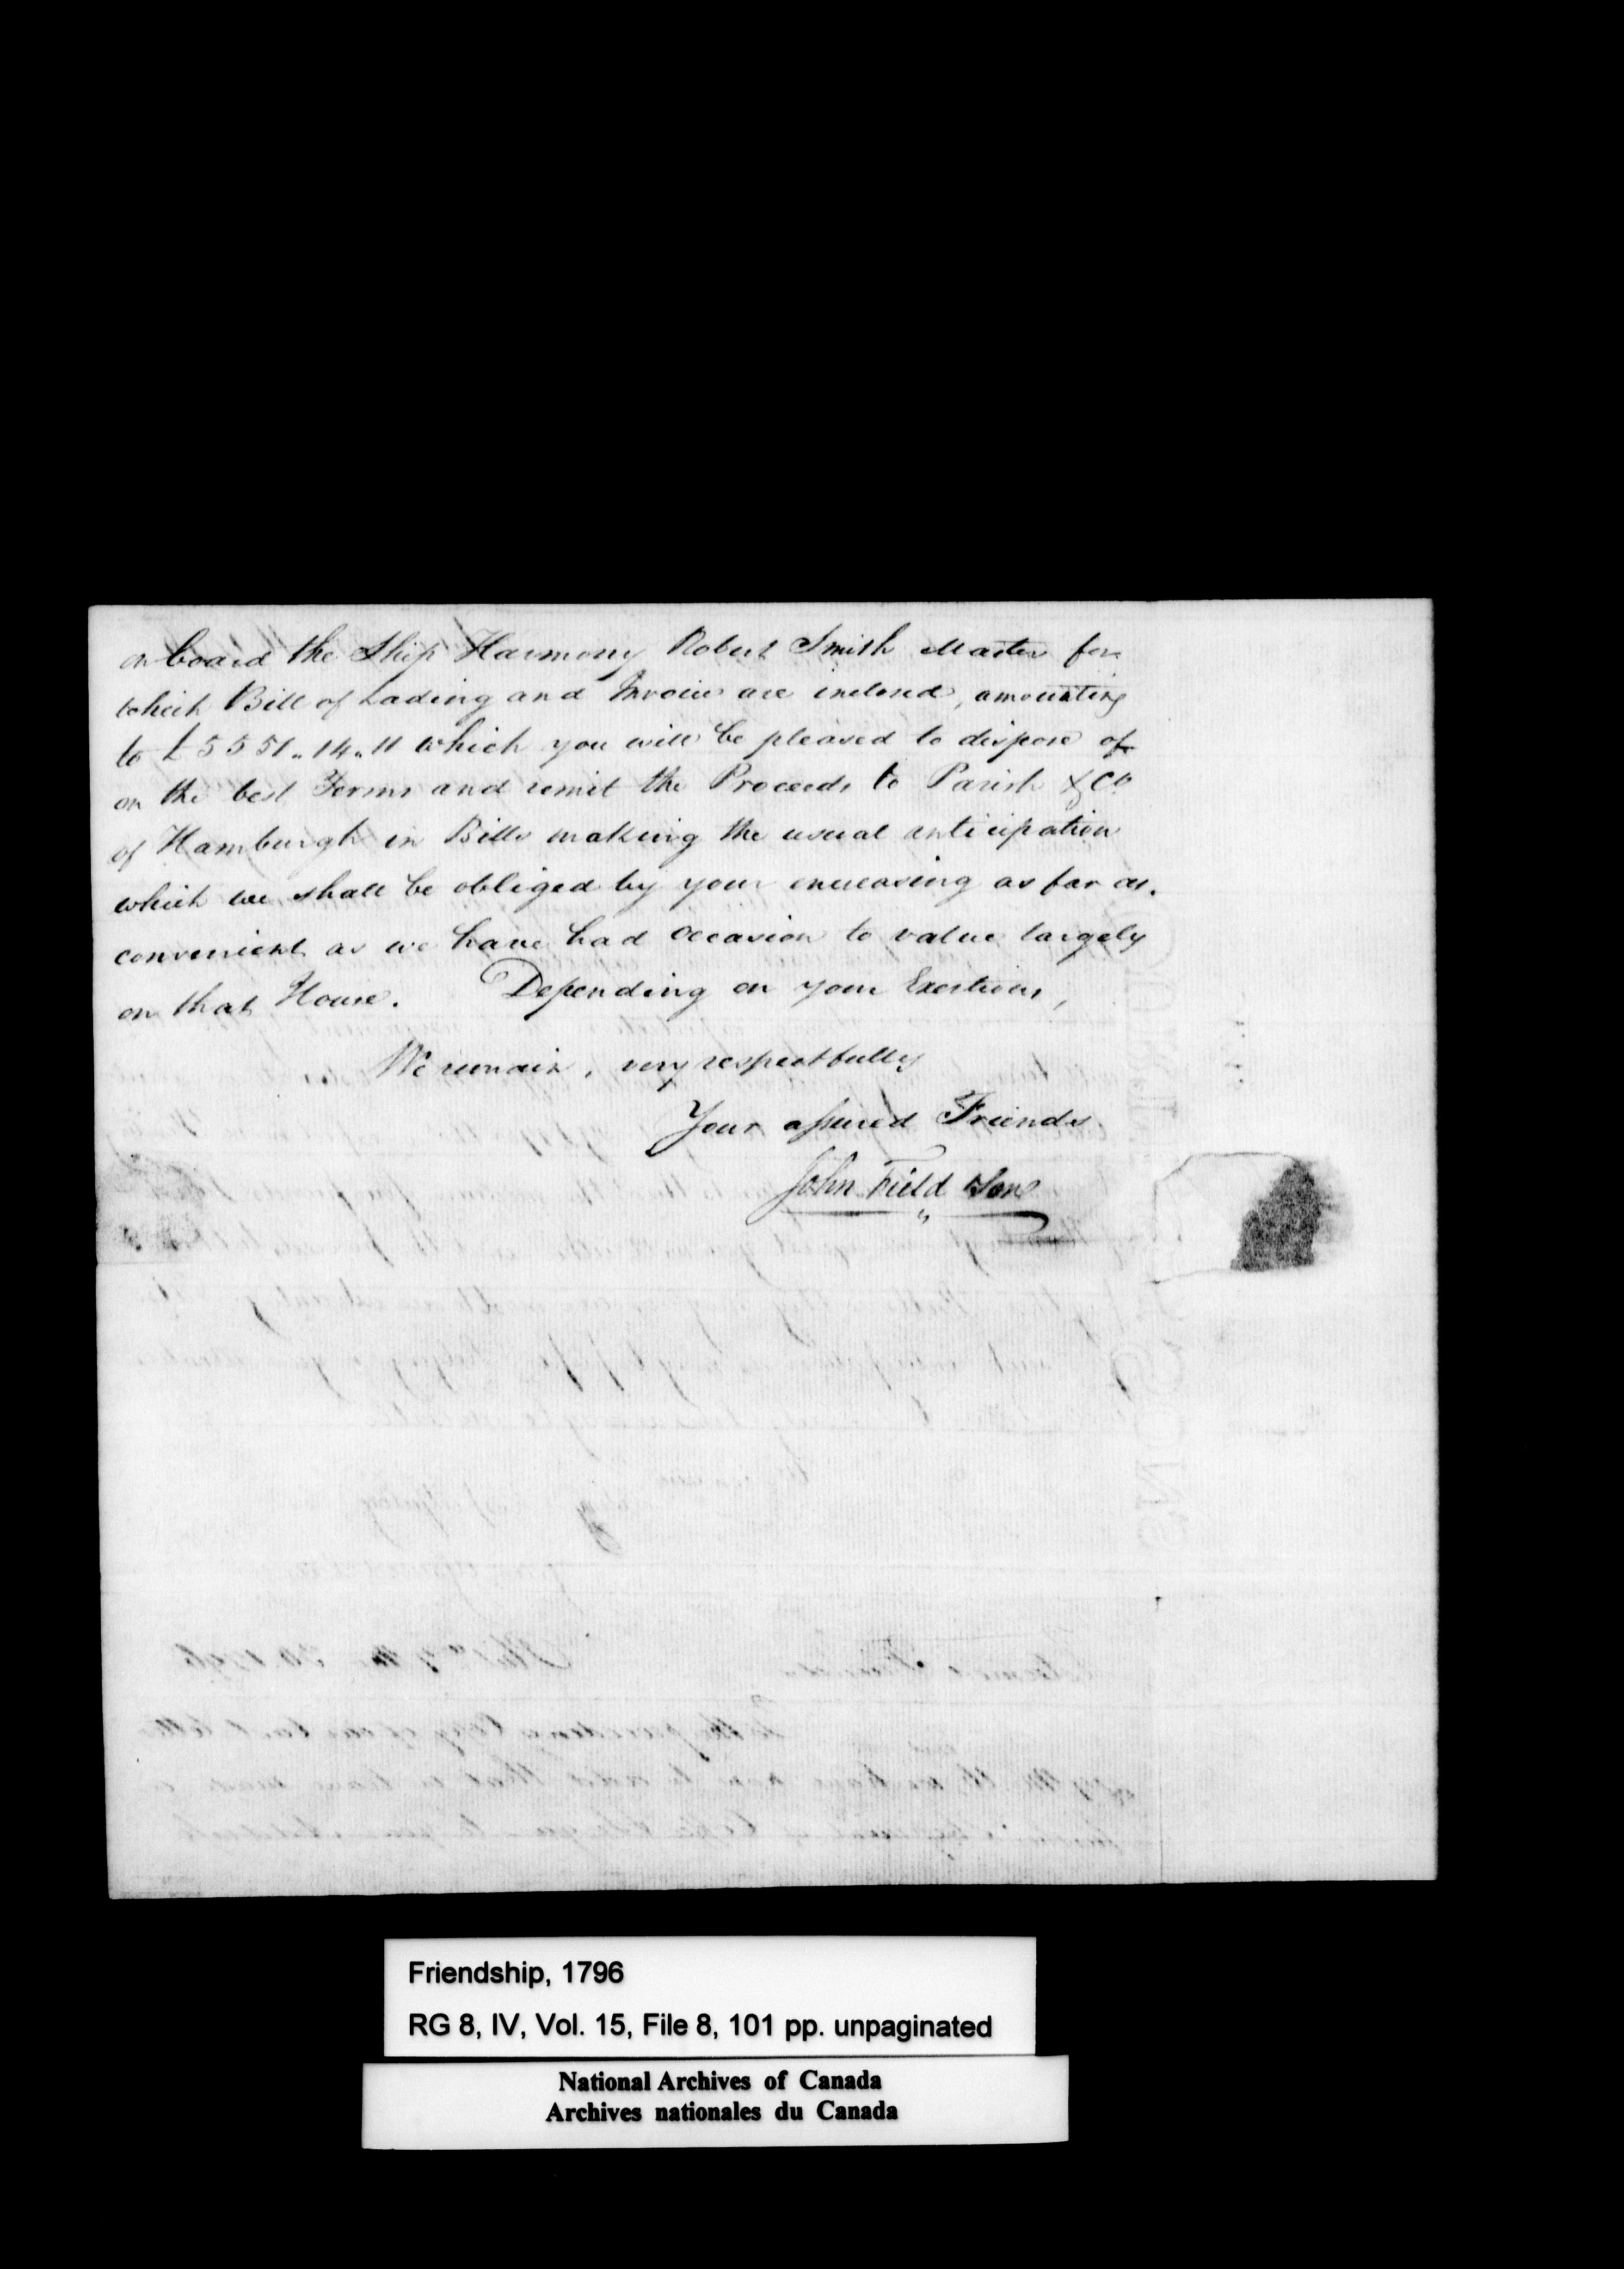 on board the Ship Harmony Robert Smith Master for
which Bill of Lading and Invoice are inclosed, amounting
to £5551..14..11 which you will be pleased to dispose of
on the best Terms and remit the Proceeds to Parish & Co
of Hamburgh in Bills making the usual anticipation
which we shall be obliged by your encreasing as far as
convenient as we have had Occasion to value largely
on that House. Depending on your Exertions,
We remain, very respectfully
Your assured Friends
John Field & Son
Friendship, 1796
RG 8, IV, Vol. 15, File 8, 101 pp. unpaginated
National Archives of Canada
Archives nationales du Canada